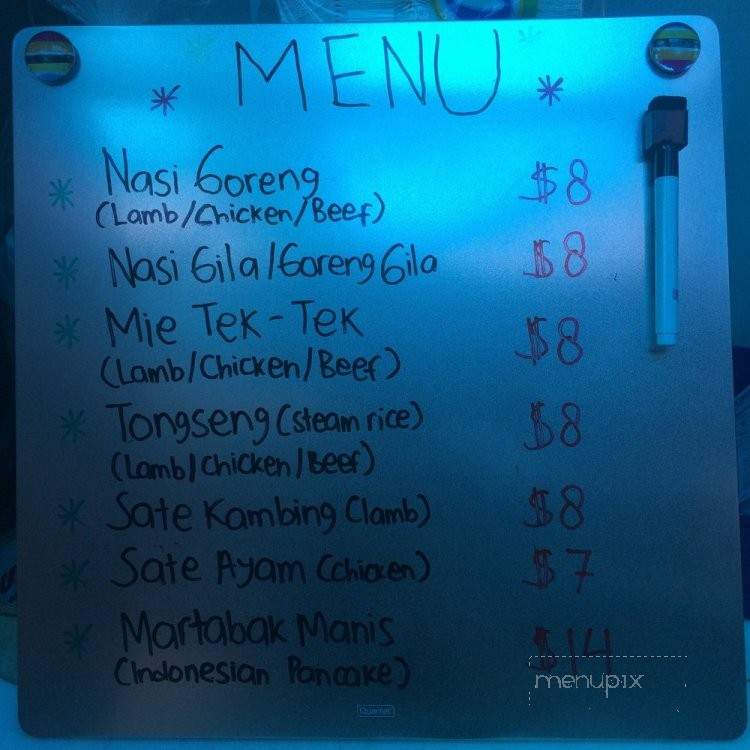 MENU
Nasi Goreng $8
(Lamb/Chicken/Beef)
Nasi Gila/Goreng Gila $8
Mie Tek-Tek $8
(Lamb/Chicken/Beef)
Tongseng (steam rice) $8
(Lamb/Chicken/Beef)
Sate Kambing (lamb) $8
Sate Ayam (chicken) $7
Martabak Manis $14
(Indonesian Pancake)
menupix
Quartet